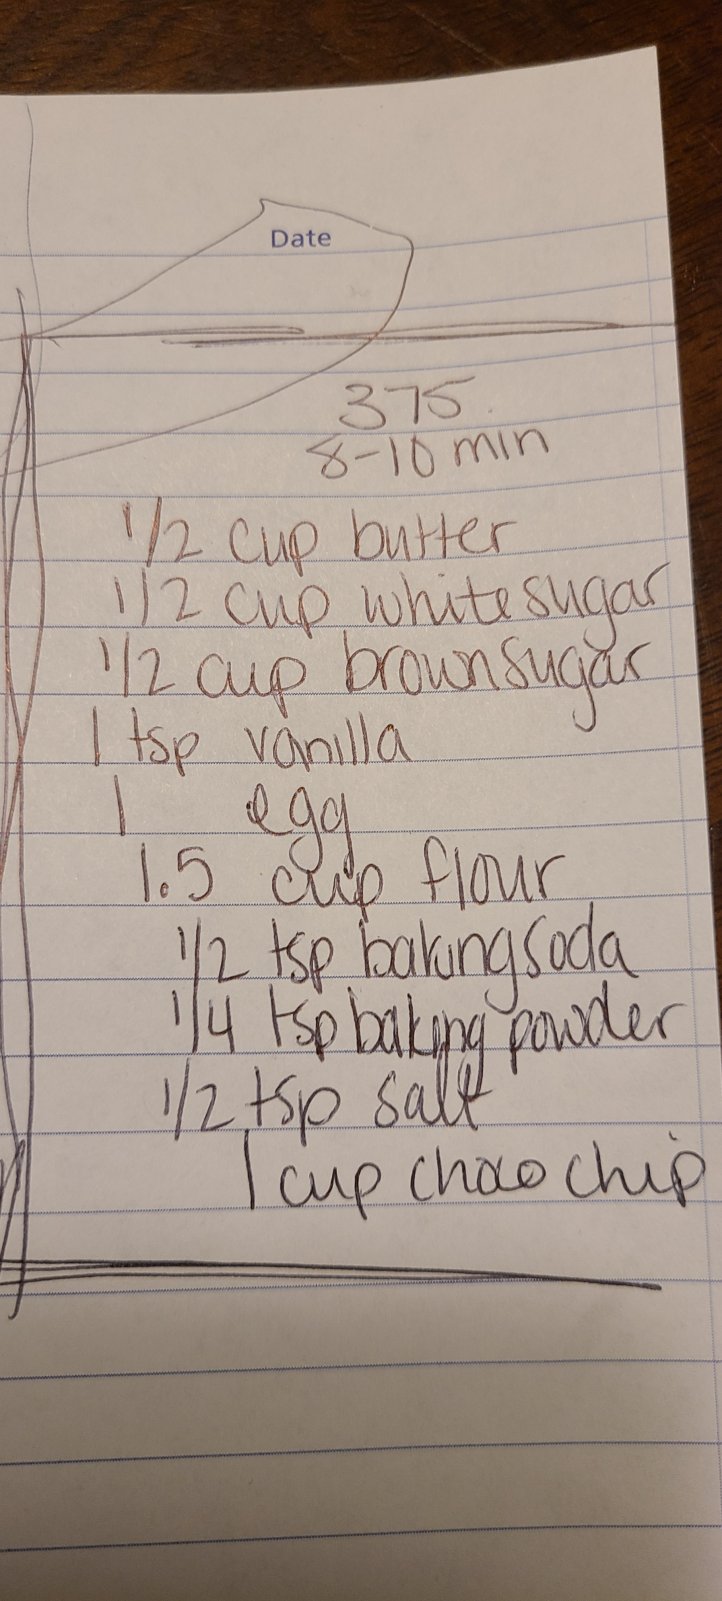 Date
375
8-10 min
1/2 cup butter
1/2 cup white sugar
1/2 cup brown sugar
1 tsp vanilla
1 egg
1.5 cup flour
1/2 tsp baking soda
1/4 tsp baking powder
1/2 tsp salt
1 cup choco chip